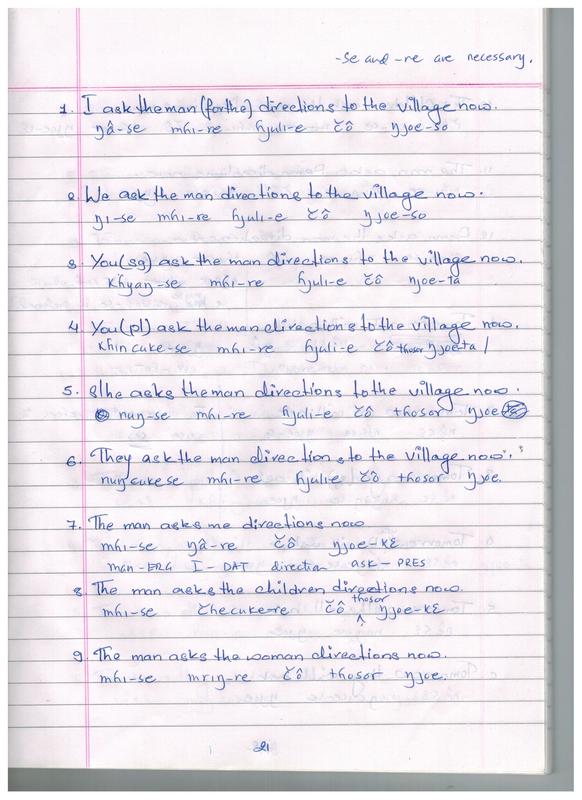 -se and -re are necessary.
1. I ask the man (for the) directions to the village now.
ŋâ-se mɦi-re ɦjuli-e čô ŋjoe-so
2. We ask the man directions to the village now.
ŋi-se mɦi-re ɦjuli-e čô ŋjoe-so
3. You (sg) ask the man directions to the village now.
khyaŋ-se mɦi-re ɦjuli-e čô ŋjoe-ta
4. You (pl) ask the man directions to the village now.
khin cuke-se mɦi-re ɦjuli-e čô thosor ŋjoe-ta /
5. S/he asks the man directions to the village now.
nuŋ-se mɦi-re ɦjuli-e čô thosor ŋjoe
6. They ask the man directions to the village now.
nuŋ cuke se mɦi-re ɦjuli-e čô thosor ŋjoe.
7. The man asks me directions now
mɦi-se ŋâ-re čô ŋjoe-kɛ
man-ERG I-DAT direction ask-PRES
8. The man asks the children directions now.
mɦi-se čhecuke-re čô thosor ŋjoe-kɛ
9. The man asks the woman directions now.
mɦi-se mriŋ-re čô thosor ŋjoe.
21